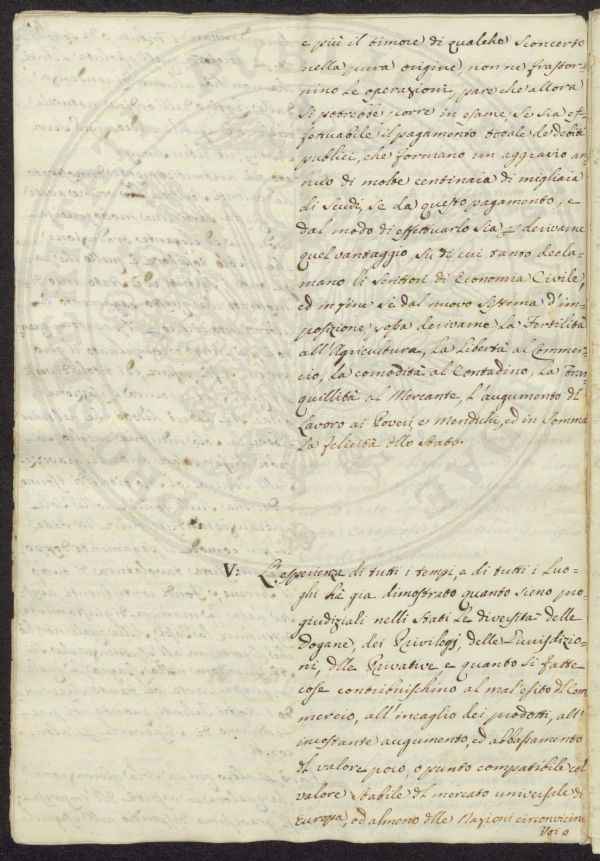 e più il timore di qualche sconcerto
nella pura origine, non ne frastor-
nino le operazioni, pare che allora
si potrebbe porre in esame, se sia ef-
fettuabile il pagamento totale de debiti
publici, che formano un aggravio an-
nuo di molte centinaia di migliaia
di Scudi, se da questo pagamento, e
dal modo di effettuarlo sia p derivarne
quel vantaggio, su di cui tanto decla-
mano li Scrittori di Economia Civile,
ed in fine se dal nuovo sistema d'im-
posizione, possa derivarne la Fertilità
all'Agricultura, la Libertà al Commer-
cio, la comodità al Contadino, la Tran-
quillità al Mercante, l'augumento del
Lavoro ai Poveri, e Mendichi, ed in somma
la felicità dello Stato.
V: L'esperienza di tutti i tempi, e di tutti i Luo-
ghi hà già dimostrato quanto sieno pre
giudiziali nelli Stati le diversità delle
Dogane, dei Privilegj, delle Giurisdizio-
ni, delle Privative e quanto si fatte
cose contribuischino al mal'esito del Com
mercio, all'incaglio dei prodotti, all'
incostante augumento, ed abbassamento
del valore poco, o punto compatibile col
valore stabile del mercato universale di
Europa, od almeno delle Nazioni circonvicine